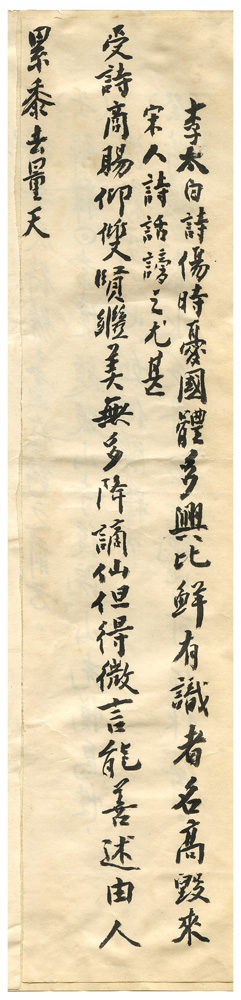 李太白詩傷時憂國體多興比鮮有識者名高毀來
宋人詩話謗之尤甚
受詩商賜仰雙賢繼美無多降謫仙但得微言能善述由人
累黍去量天